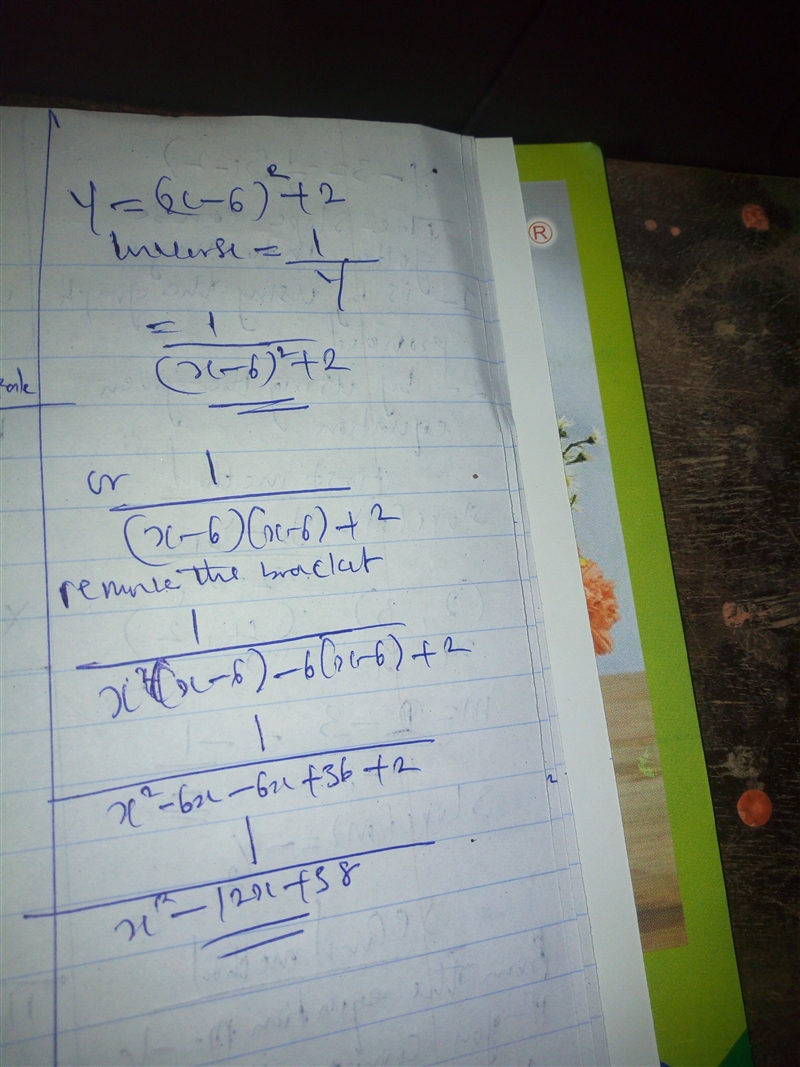 y = (x-6)² + 2
inverse = 1/y
= 1/((x-6)² + 2)
or 1/((x-6)(x-6) + 2)
remove the bracket
1/(x(x-6) -6(x-6) + 2)
1/(x² -6x -6x +36 +2)
1/(x² - 12x + 38)
®